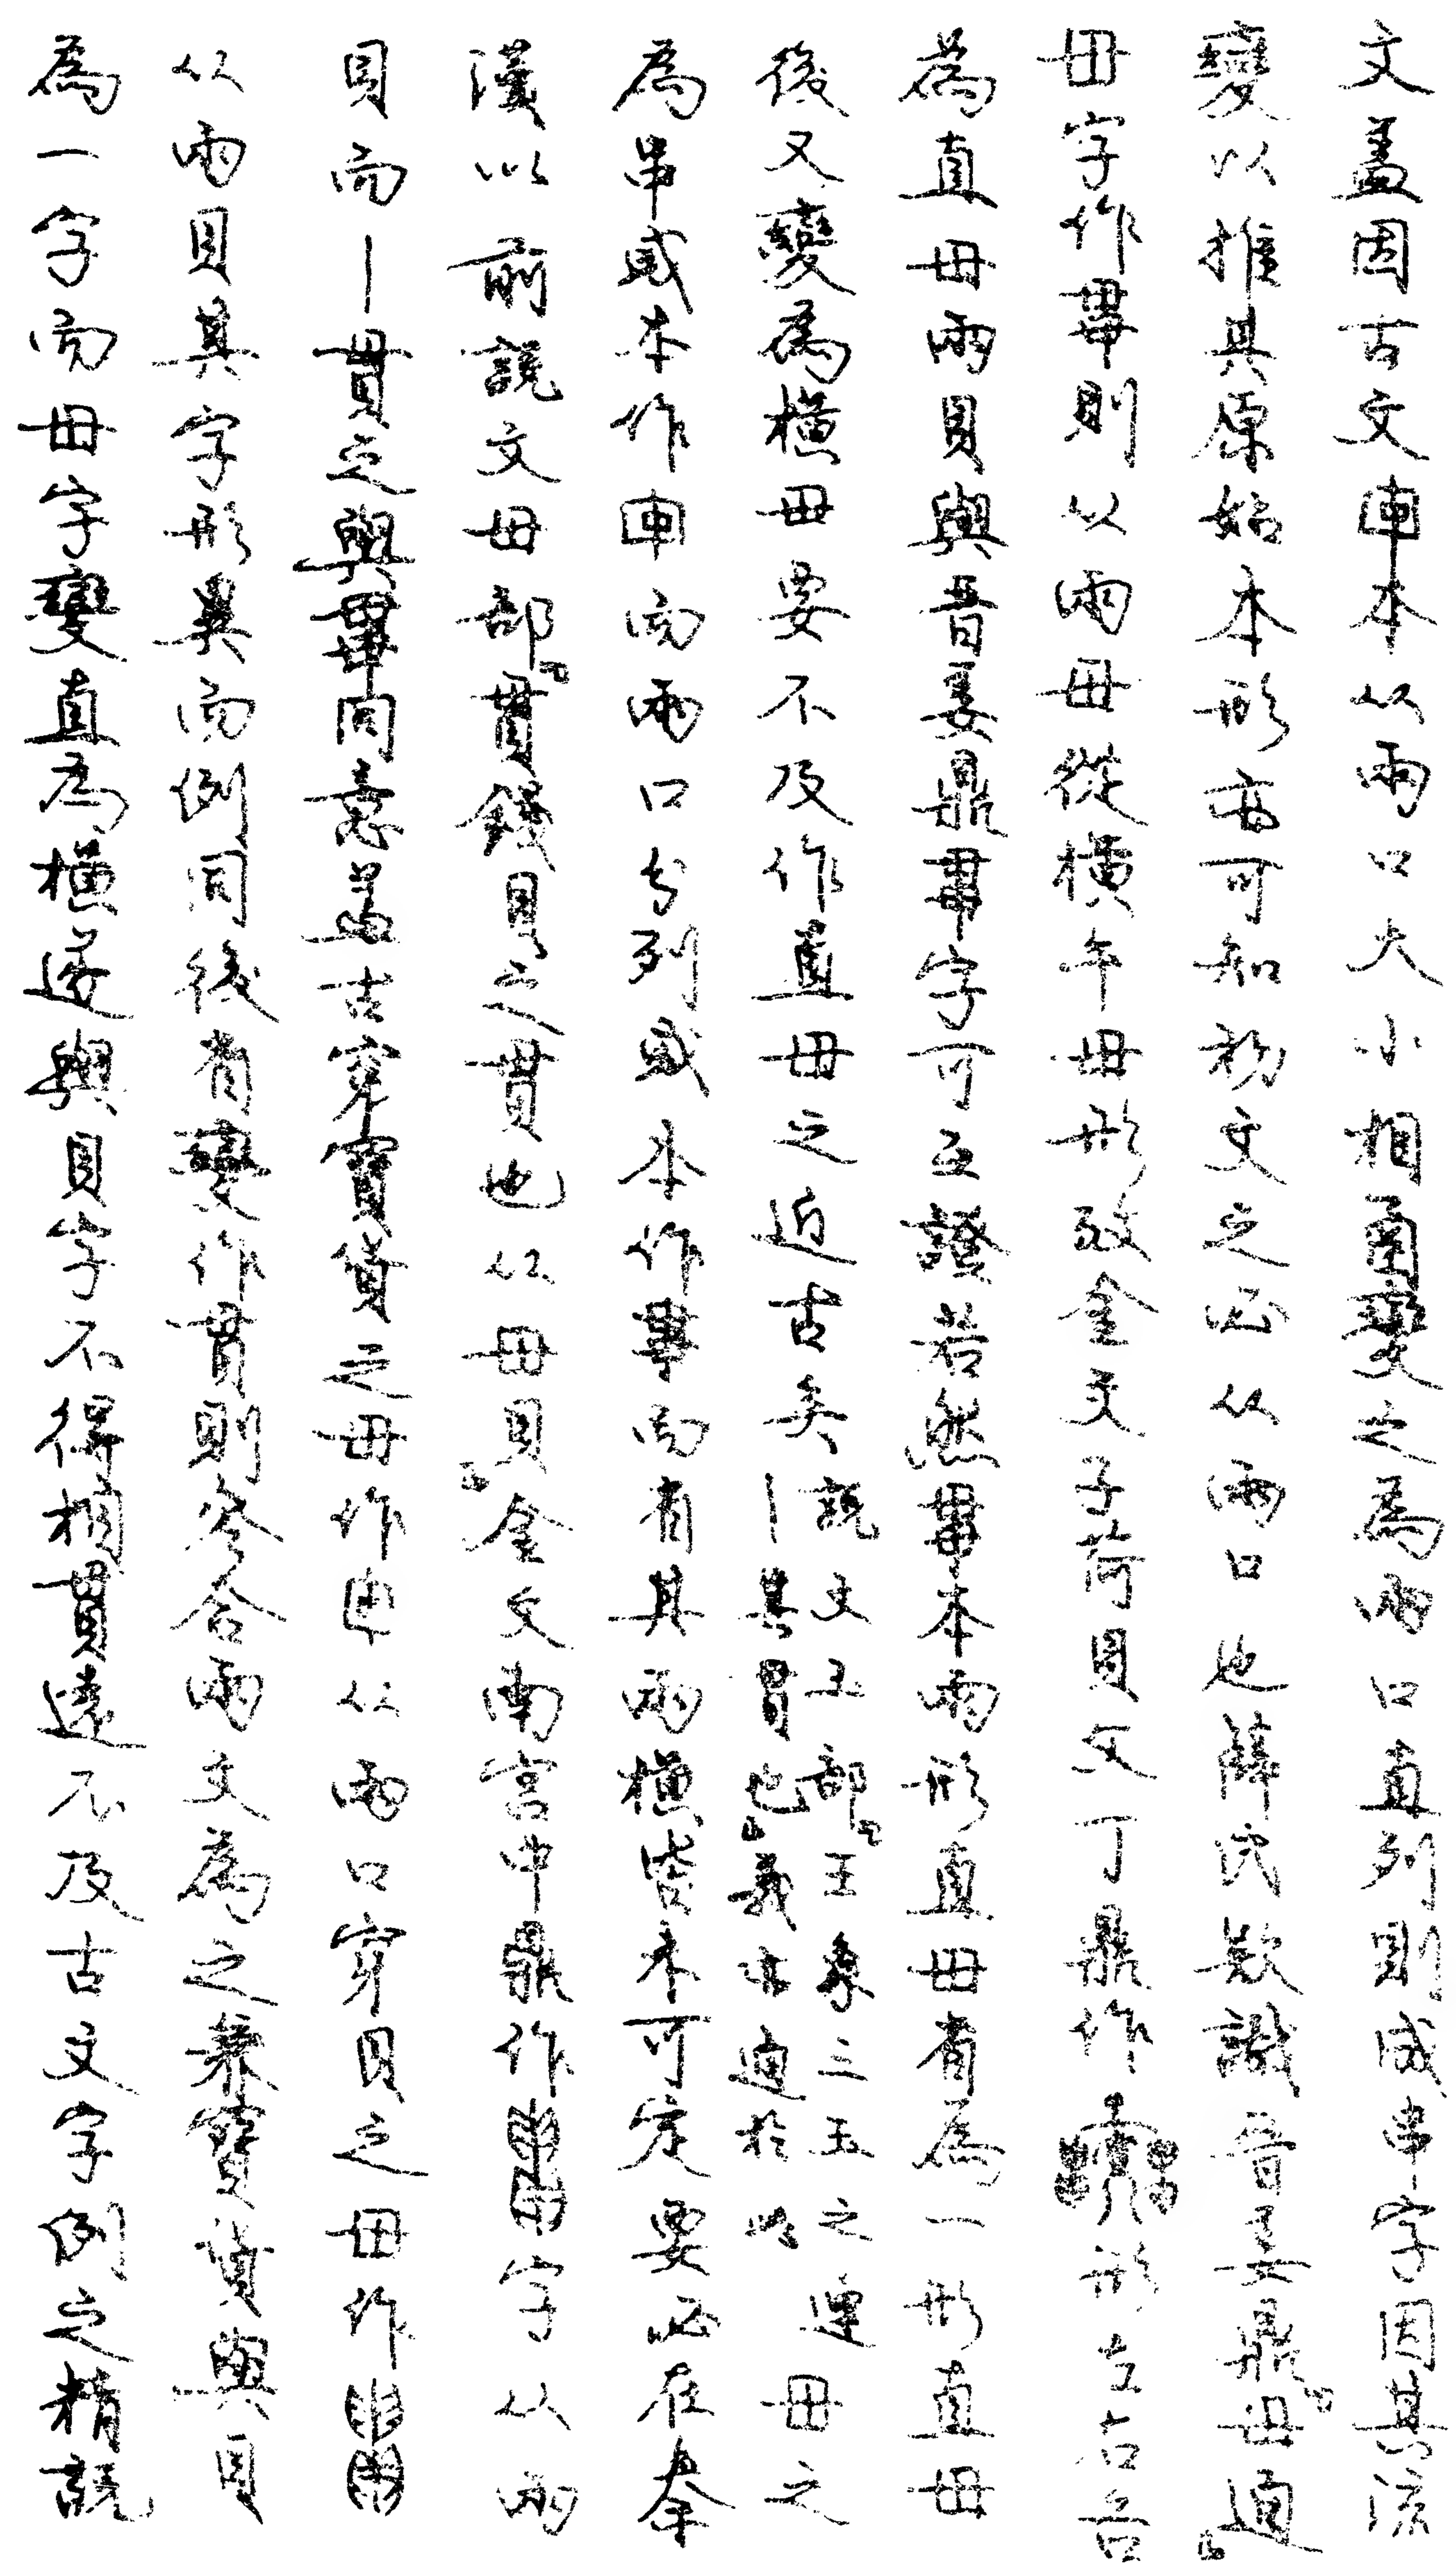 文蓋因古文𠁼本从兩口大小相函變之為兩口直列則成串字因其流
變以推其原始本形亦可知初文之必从兩口也薛氏款識晉姜鼎「毌通」
毌字作則以兩毌從橫午毌形攷金文子荷貝父丁鼎作形左右各
為直毌兩貝與晉姜鼎字可互證若然本兩形直毌省為一形直毌
後又變為橫毌要不及作直毌之近古矣說文玉部「王象三玉之連丨其貫也」義亦通於此毌之
為串或本作𠁼而兩口分列或本作而省其兩橫皆未可定要必在秦
漢以前說文毌部「貫錢貝之貫也从毌貝」金文南宮中鼎作字从兩
貝而丨貫之與同意葢古穿寶貨之毌作𠁼从兩口穿貝之毌作
从兩貝其字形異而例同後省變作貫則蓉合兩文為之兼寶貨與貝
為一字而毌字變直為橫遂與貝字不得相貫遠不及古文字例之精說